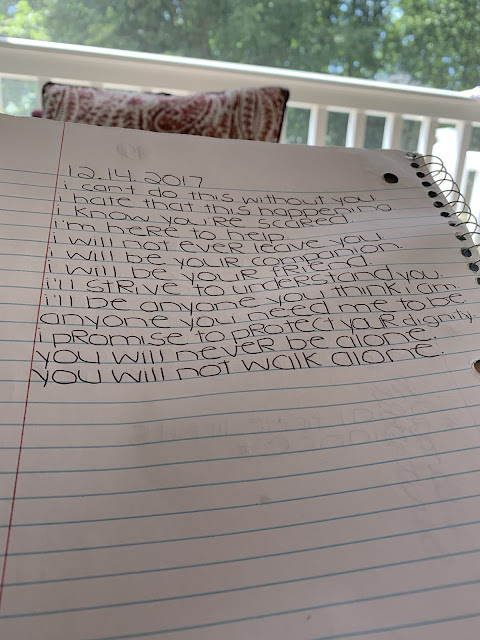 12.14.2017
i can't do this without you.
i hate that this happening
i know you're scared.
i'm here to help.
i will not ever leave you.
i will be your companion.
i will be your friend.
i'll strive to understand you.
i'll be anyone you think i am.
anyone you need me to be.
i promise to protect your dignity.
you will never be alone.
you will not walk alone.